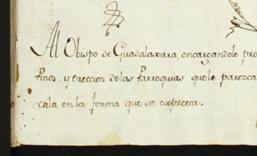 Al Obispo de Guadalaxara, encargandole
fines, y ereccion de las Parroquias que le parezca
cala en la forma que se expresa.